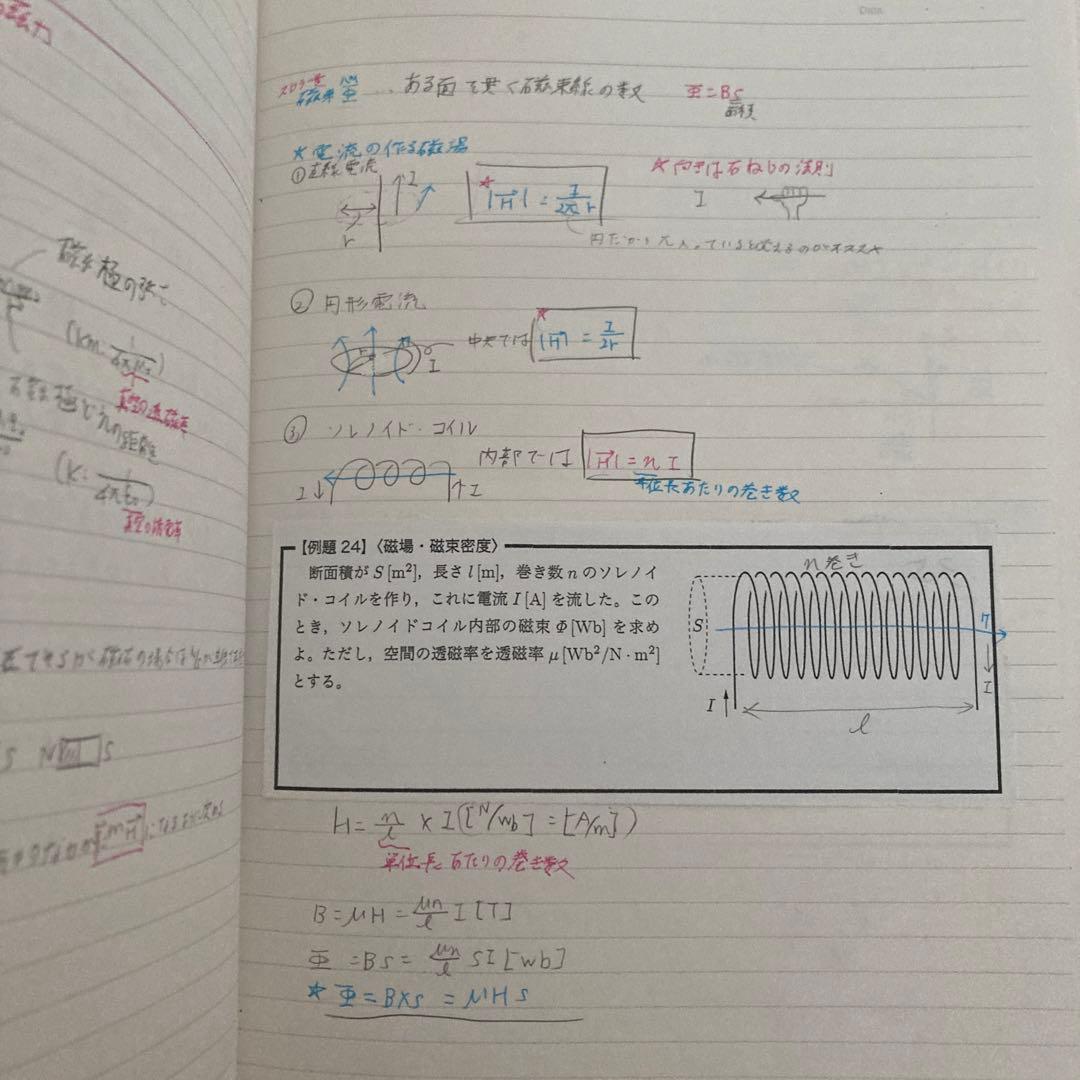 磁極の強さ
(km: 1/4πμ₀)
真空の透磁率
磁極どうしの距離
(k: 1/4πε₀)
真空の誘電率
S N S
mH
Date
スカラー量
磁束 Φ …ある面を貫く磁束線の数 Φ=BS
面積
☆電流の作る磁場
①直線電流 I r |H| = I/2πr ☆向きは右ねじの法則
I
円だから
②円形電流
中央では |H| = I/2r
I
③ソレノイド・コイル 内部では |H| = nI
単位長あたりの巻き数
I↓ ↑I
【例題 24】〈磁場・磁束密度〉
断面積が S [m²],長さ l [m],巻き数 n のソレノイ
ド・コイルを作り,これに電流 I [A] を流した。この
とき,ソレノイドコイル内部の磁束 Φ [Wb] を求め
よ。ただし,空間の透磁率を透磁率 μ [Wb²/N・m²]
とする。
n巻き
S
I
I
l
H = n/l × I ([N/Wb] = [A/m])
単位長あたりの巻き数
B = μH = μn/l I [T]
Φ = BS = μn/l SI [Wb]
☆ Φ = B×S = μHS